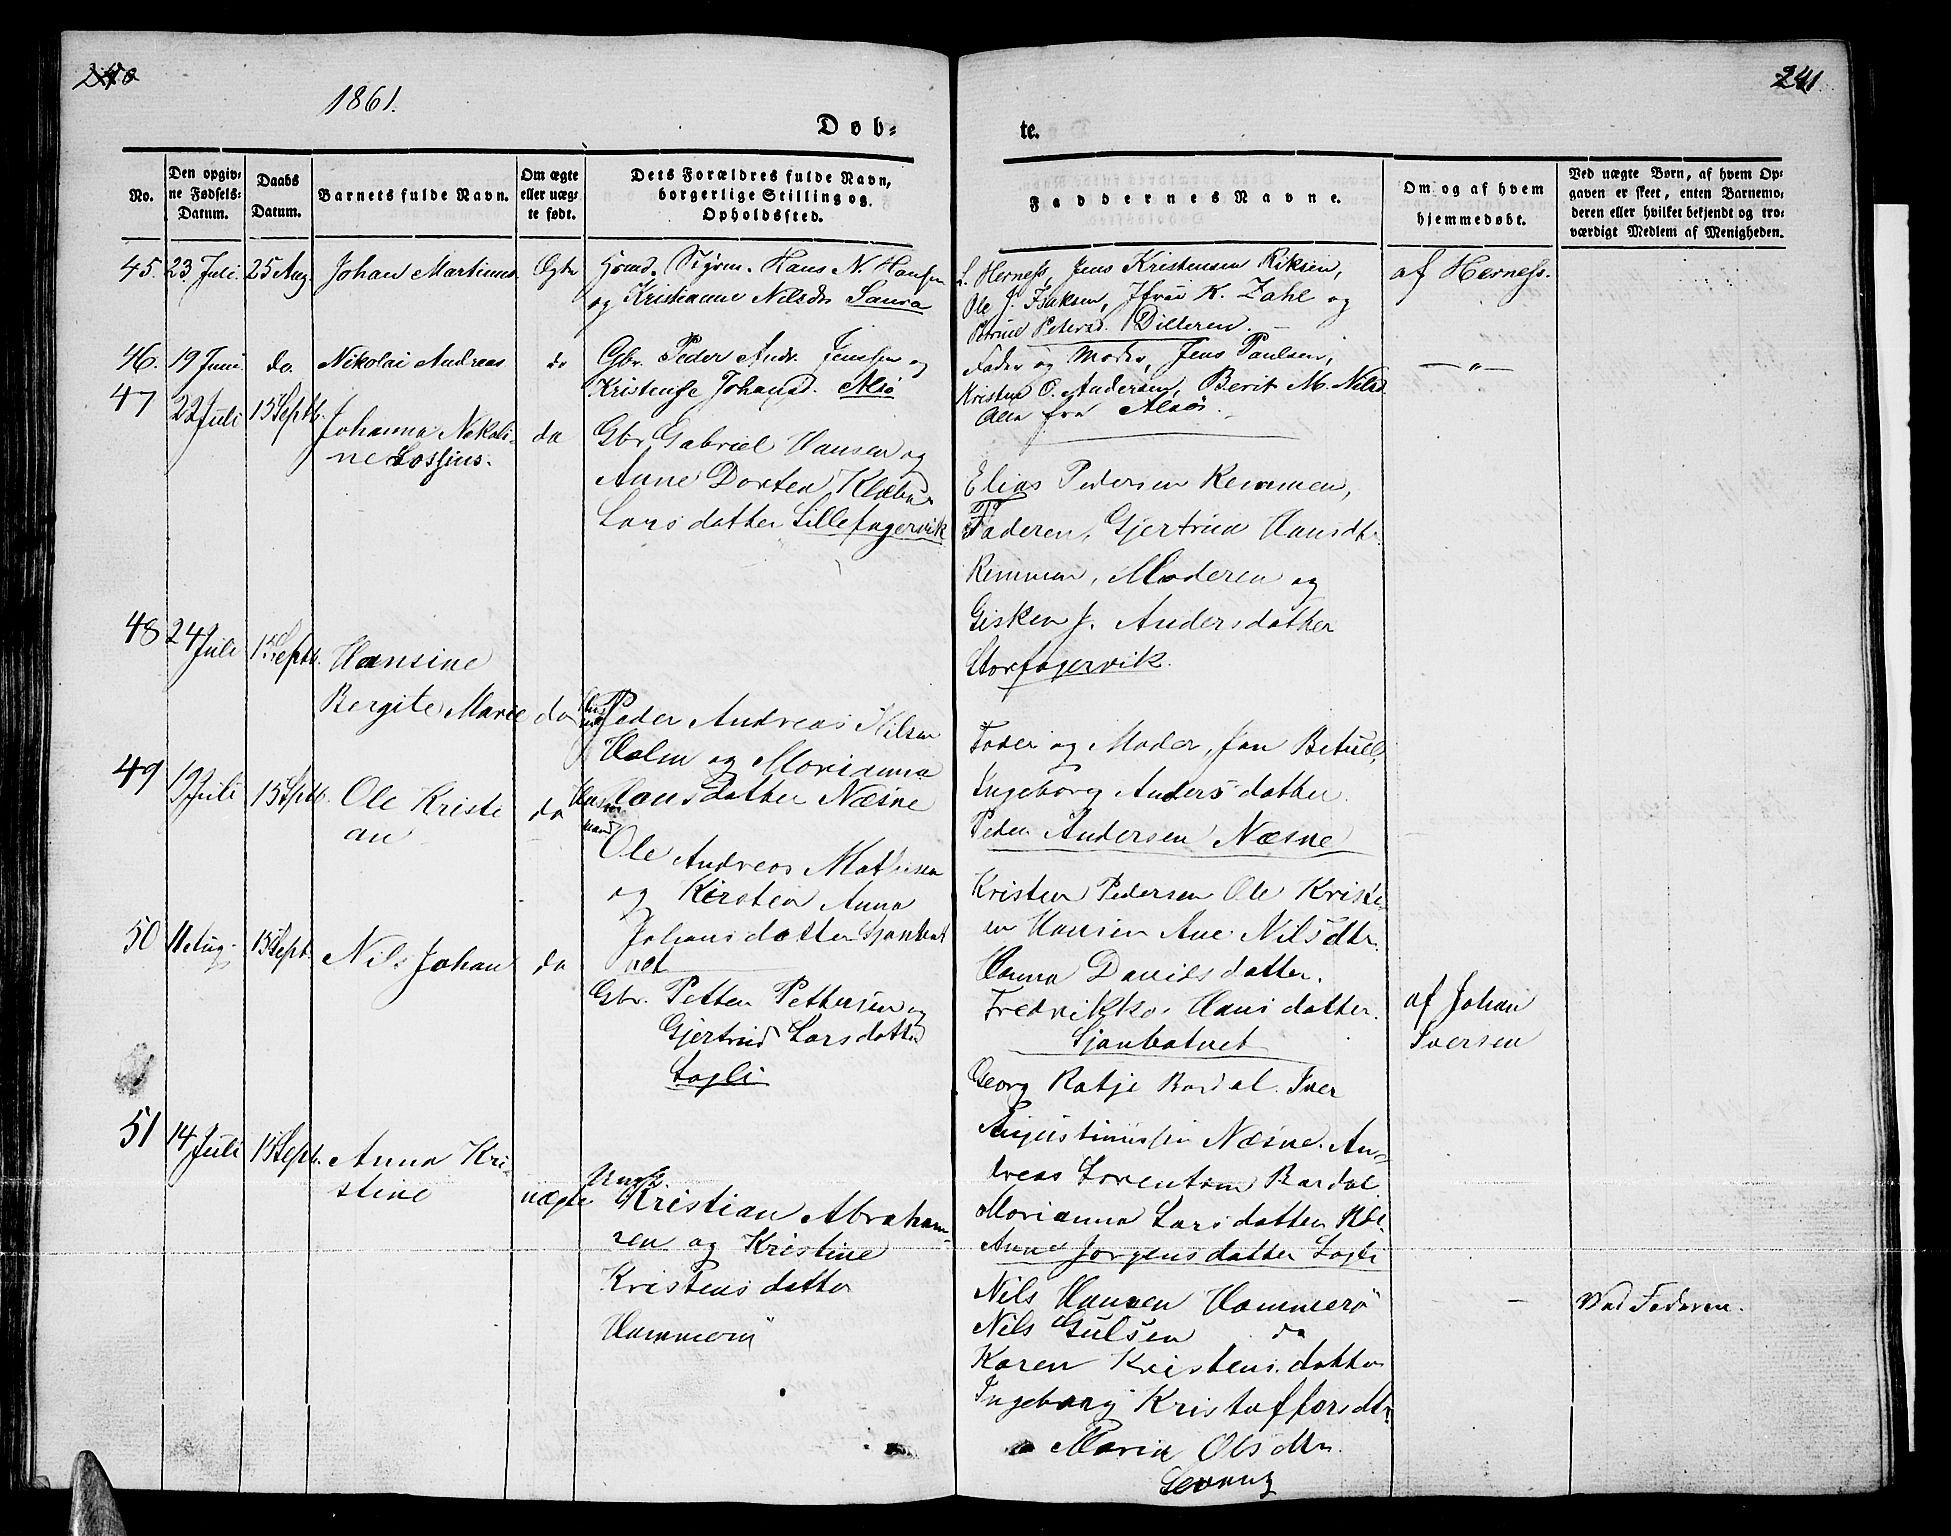 240
241
1861.
Døb-
te.
No.
Den opgiv-
ne Fødsels-
Datum.
Daabs
Datum.
Barnets fulde Navn.
Om ægte
eller uæg-
te født.
Dets Forældres fulde Navn,
borgerlige Stilling og
Opholdssted.
Faddernes Navne.
Om og af hvem
hjemmedøbt.
Ved uægte Børn, af hvem Op-
gaven er skeet, enten Barnemo-
deren eller hvilket bekjendt og tro-
værdigt Medlem af Menigheden.
45. 23 Juli. 25 Aug. Johan Martinus Ægte Hans N. Hansen
og Kristianne Nelsdr Saura
L. Herness, Jens Kristensen
Ole J. Isaksen, K. Zahl og
Petrine Petersd. Dilleren.
af Herness.
46. 19 Juni. do. Nikolai Andreas do Gbr. Peder Andr. Jenssen og
Kristense Johansd. Alsø
Fader og Moder, Jens Paulsen,
O. Andersen, Berit M. Nilsd.
Alle fra Alsø.
— " —
47 22 Juli 15 Septb. Johanna Nikoli-
ne Lossius.
do
Gbr. Gabriel Hansen og
Anne Dorten Klæbu
Larsdatter Lillefagervik
Elias Pedersen Remmen,
Faderen, Gjertrud Hansdtr.
Remmen, Moderen og
Gisken J. Andersdatter
Storfagervik.
48 24 Juli 15 Septb. Hansine
Bergite Marie do
Peder Andreas Nilsen
Holm og Marianna
Hansdatter Næsne
Fader og Moder, Jan Betuel,
Ingeborg Andersdatter
Peder Andersen Næsne
49 19 Juli 15 Septb. Ole Kristi
an
do
Huus
mand
Ole Andreas Mathisen
og Kirsten Anna
Johansdatter Sjonbot
net
Kristen Pedersen Ole Kristi-
an Hansen Ane Nilsdtr.
Hanna Davidsdatter.
Fredrikke Hansdatter.
Sjonbotnet
50 11 Aug. 15 Sept. Nils Johan do
Gbr. Petter Pettersen og
Gjertrud Larsdatter
Løgli
Georg Ratje Bardal. Iver
Augustinussen Næsne. An-
dreas Lorentsen Bardal
Marianna Larsdatter
Anne Jørgensdatter Løgli
af Johan
Iversen
51 14 Juli 15 Septb. Anna Kri-
stine
uægte
Ungk.
Kristian Abraham-
sen og Kristine
Kristensdatter
Hammerø
Nils Hansen Hammerø
Nils Gulsen do
Karen Kristensdatter
Ingeborg Kristoffersdtr.
Maria Olsdtr.
—
Ved Faderen.